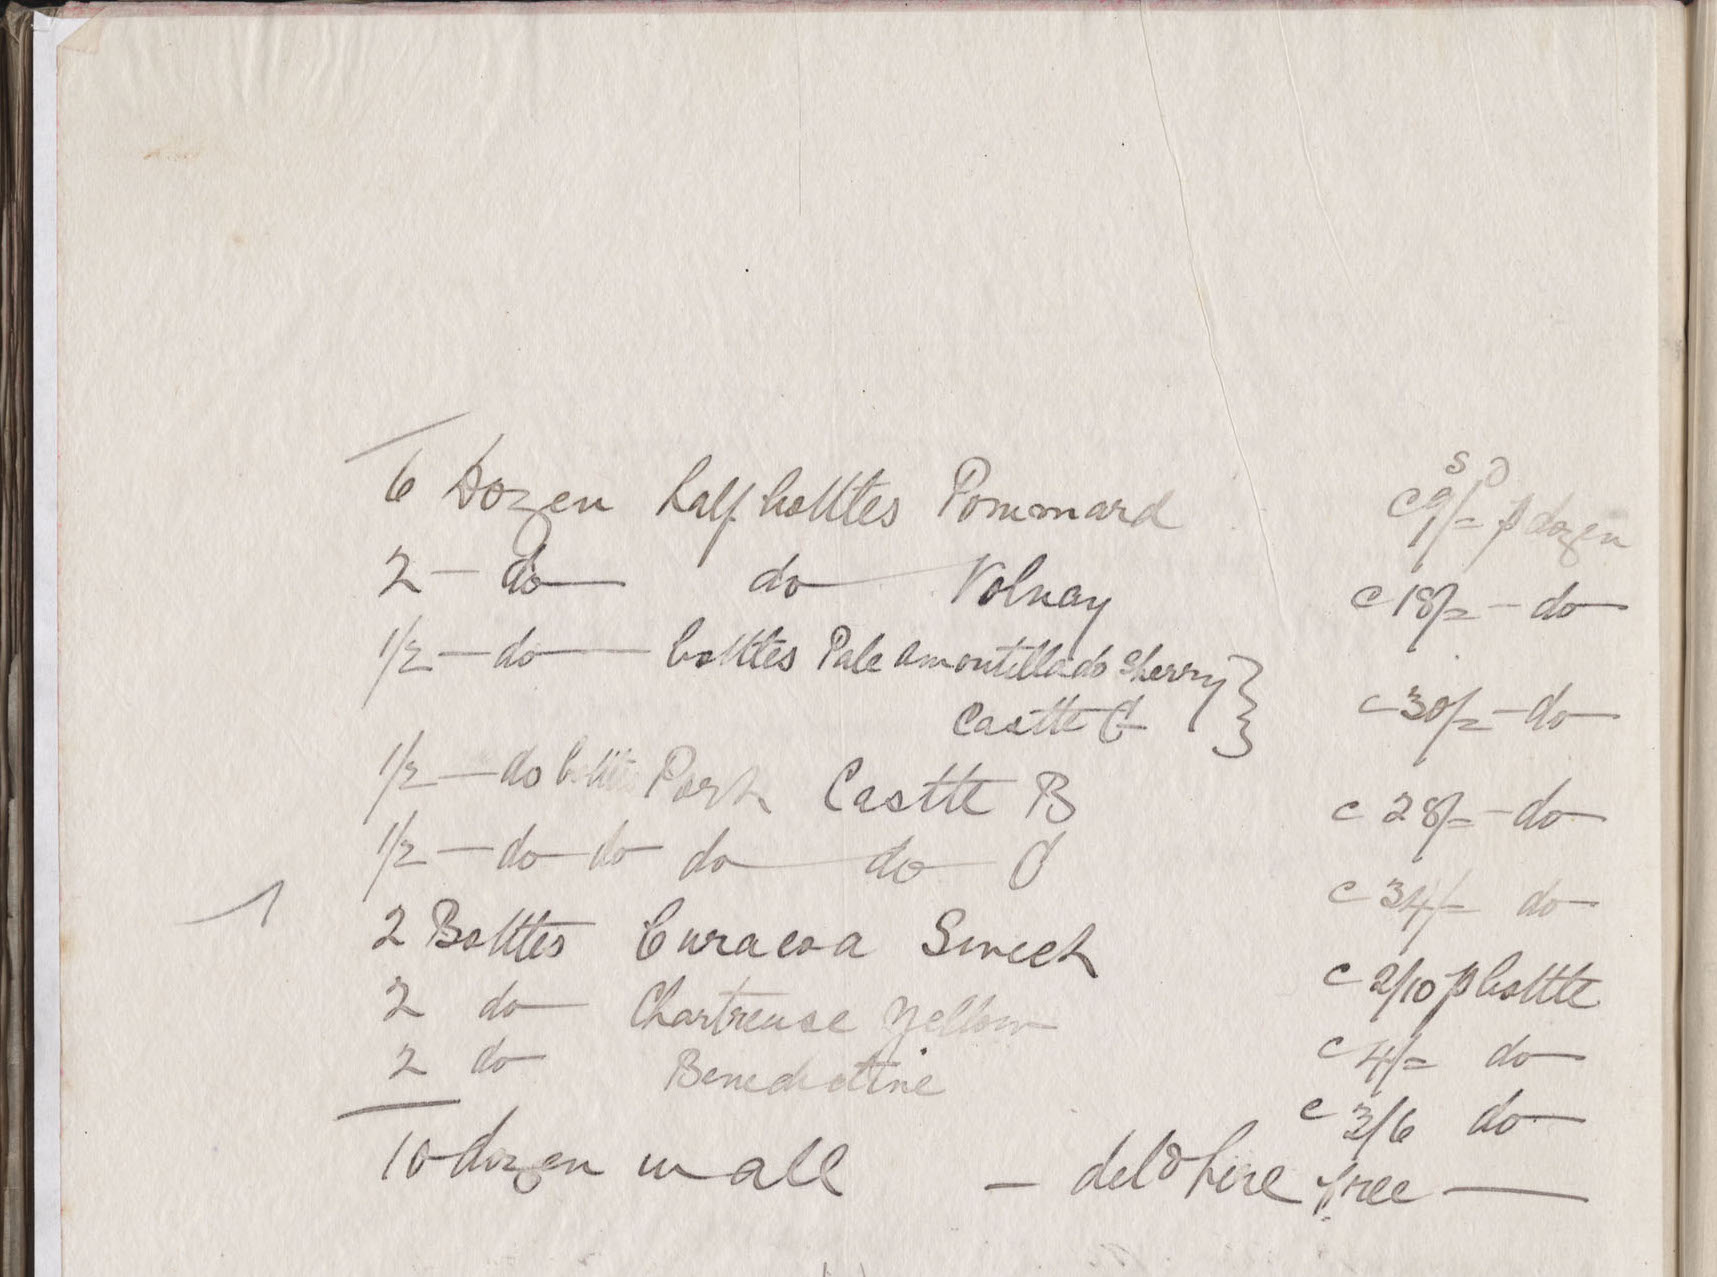 s D
6 Dozen half bottles Pommard c 9/= p dozen
2 — do — do — Volnay c 18/= — do —
1/2 — do — bottles Pale Amontillado Sherry c 30/= — do —
Castle C
1/2 — do bottles Port Castle B c 28/= — do —
1/2 — do — do — do — do — C c 34/= do —
2 Bottles Curacoa Sweet c 2/10 p bottle
2 do — Chartreuse Yellow c 4/= do —
2 do Benedictine c 3/6 do —
10 dozen in all — deld here free —